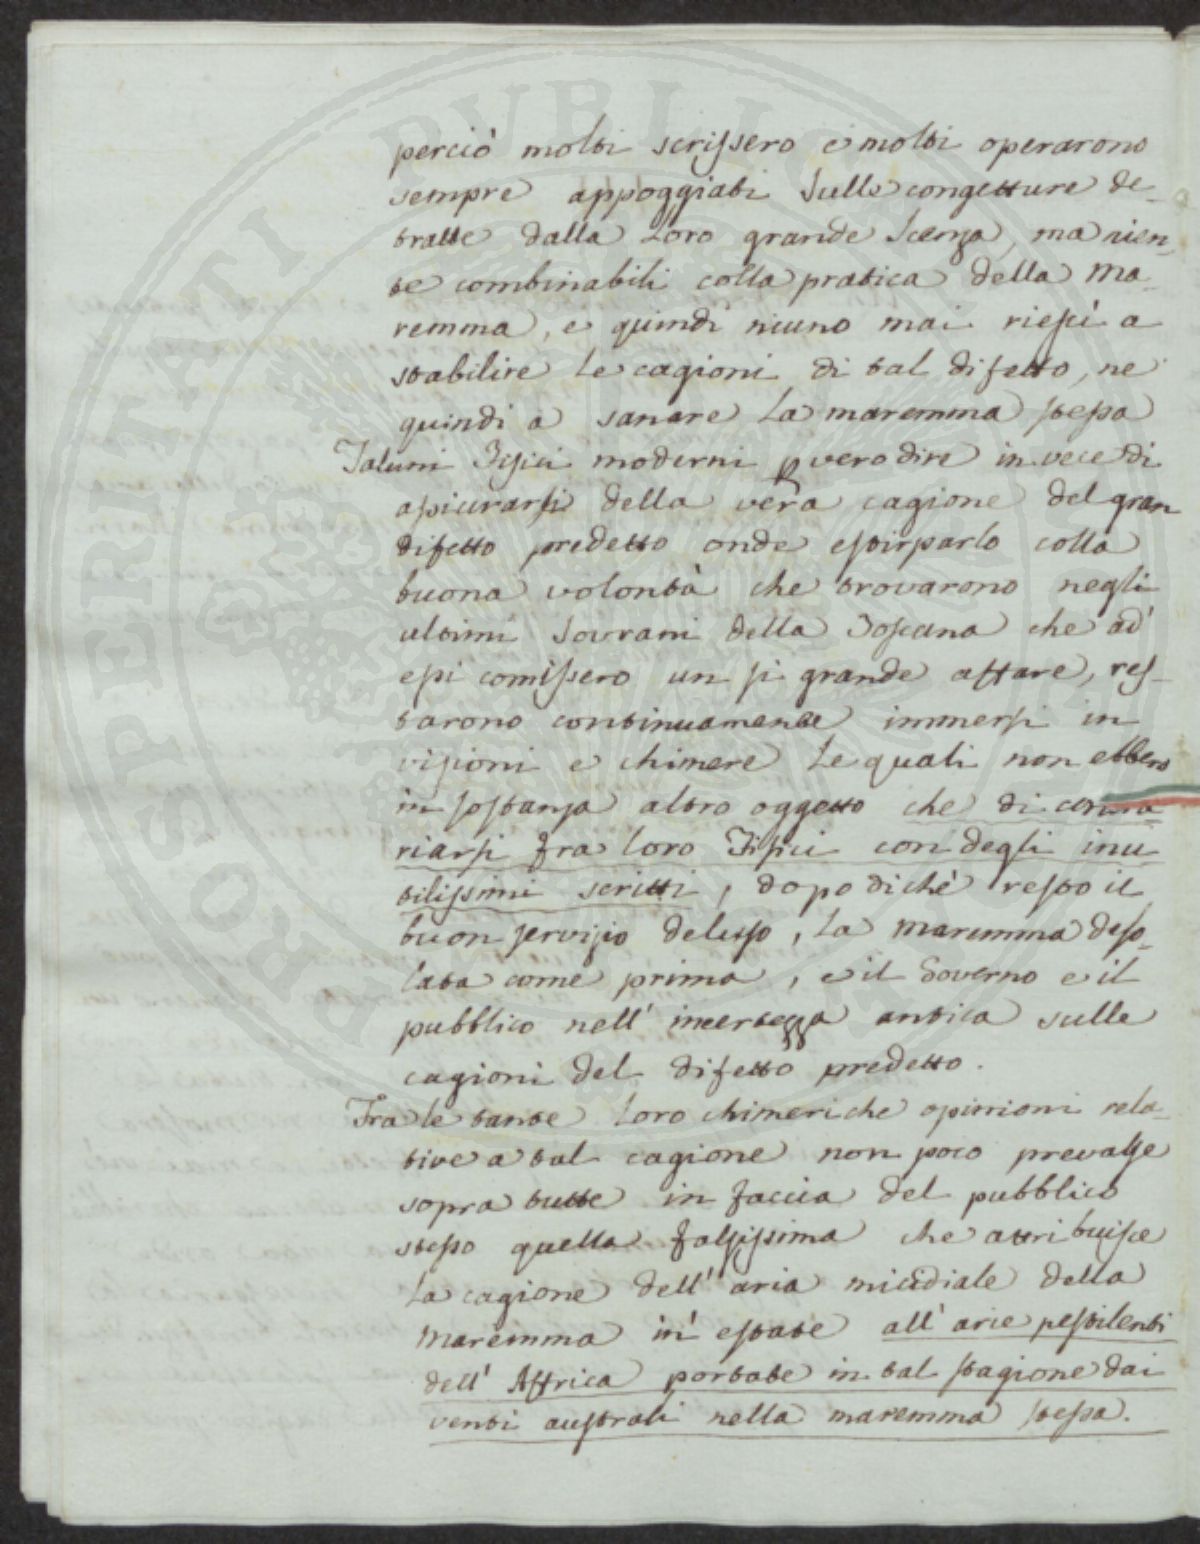 perciò molti scrissero e molti operarono
sempre appoggiati sulle congetture de-
tratte dalla loro grande scenza, ma nien-
te combinabili colla pratica della Ma-
remma, e quindi niuno mai riescì a
stabilire le cagioni di tal difetto, ne
quindi a sanare la maremma stessa
Taluni Fisici moderni p vero dire in vece di
assicurarsi della vera cagione del gran
difetto predetto onde estirparlo colla
buona volontà che trovarono negli
ultimi Sovrani della Toscana che ad
essi comissero un si grande affare, res-
tarono continuamente immersi in
visioni e chimere le quali non ebbero
in sostanza altro oggetto che di contra-
riarsi fra loro Fisici con degli inu-
tilissimi scritti, dopo di chè resto il
buon servizio deluso, la maremma deso-
lata come prima, e il Governo e il
pubblico nell' incertezza antica sulle
cagioni del difetto predetto.
Fra le tante loro chimeriche opinioni rela-
tive a tal cagione non poco prevalse
sopra tutte in faccia del pubblico
stesso quella falsissima che attribuisce
la cagione dell' aria micidiale della
Maremma in estate all' arie pestilenti
dell' Affrica portate in tal stagione dai
venti australi nella maremma stessa.
PROSPERITATI PUBLICAE